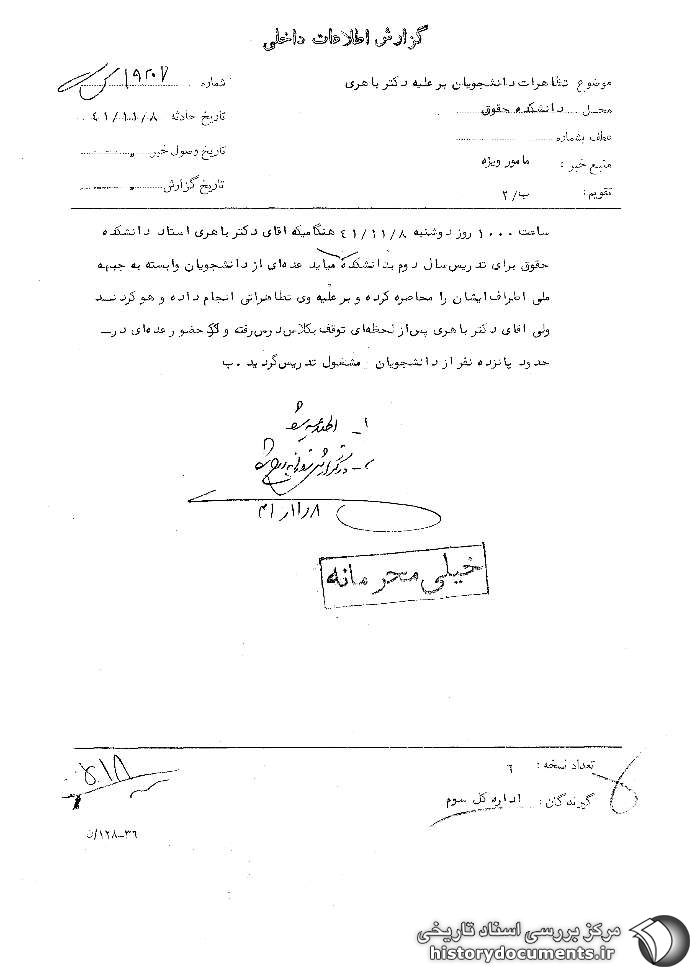 گزارش اطلاعات داخلی
موضوع تظاهرات دانشجویان بر علیه دکتر باهری
شماره ۱۹۲۰۷
محل دانشکده حقوق
تاریخ حادثه ۴۱/۱۱/۸
عطف بشماره
تاریخ وصول خبر
منبع خبر : مامور ویژه
تاریخ گزارش
تقویم: ب/۲
ساعت ۱۰۰۰ روز دوشنبه ۴۱/۱۱/۸ هنگامیکه اقای دکتر باهری استاد دانشکده
حقوق برای تدریس سال دوم بدانشکده میاید عده‌ای از دانشجویان وابسته به جبهه
ملی اطراف ایشان را محاصره کرده و بر علیه وی تظاهراتی انجام داده و هو کردند
ولی اقای دکتر باهری پس از لحظه‌ای توقف بکلاس درس رفته و حضور عده‌ای در
حدود پانزده نفر از دانشجویان مشغول تدریس گردید . ب
۱-
۲-
۴۱/۱۱/۸
خیلی محرمانه
تعداد نسخه : ۶
گیرندگان : اداره کل سوم
۳۶-۱۲۸/ن
مرکز بررسی اسناد تاریخی
historydocuments.ir